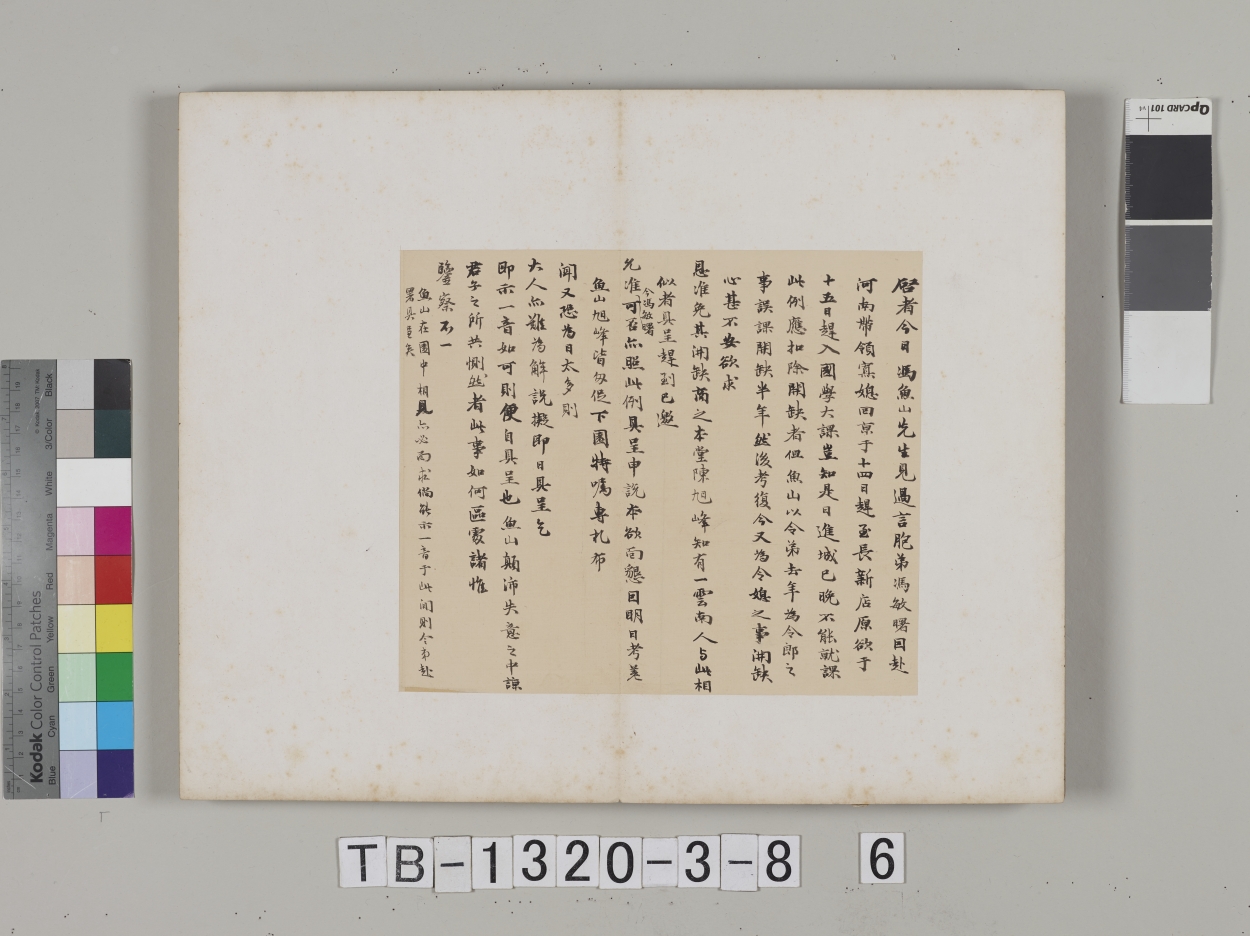 啓者今日馮魚山先生見過言胞弟馮敏曙因赴
河南帶領寡媳回京于十四日趕至長新店原欲于
十五日趕入國學大課豈知是日進城已晚不能就課
此例應扣除開缺者但魚山以令弟去年為令郎之
事誤課開缺半年然後考復今又為令媳之事開缺
心甚不安欲求
恩准免其開缺商之本堂陳旭峰知有一雲南人与此相
似者具呈趕到已邀
允准可否亦照此例具呈申說本欲面懇因明日考差
令馮敏曙
魚山旭峰皆匆促下園特囑專札布
聞又恐為日太多則
大人亦難為解說擬即日具呈乞
即示一音如可則便自具呈也魚山顛沛失意之中諒
君子之所共惻然者此事如何區處諸惟
鑒察不一
魚山在園中相見亦必面求倘能示一音于此間則令弟赴
署具呈矣
Kodak Color Control Patches
© Kodak
Blue Cyan Green Yellow Red Magenta White 3/Color Black
QPCARD 101 v4
TB-1320-3-8 6